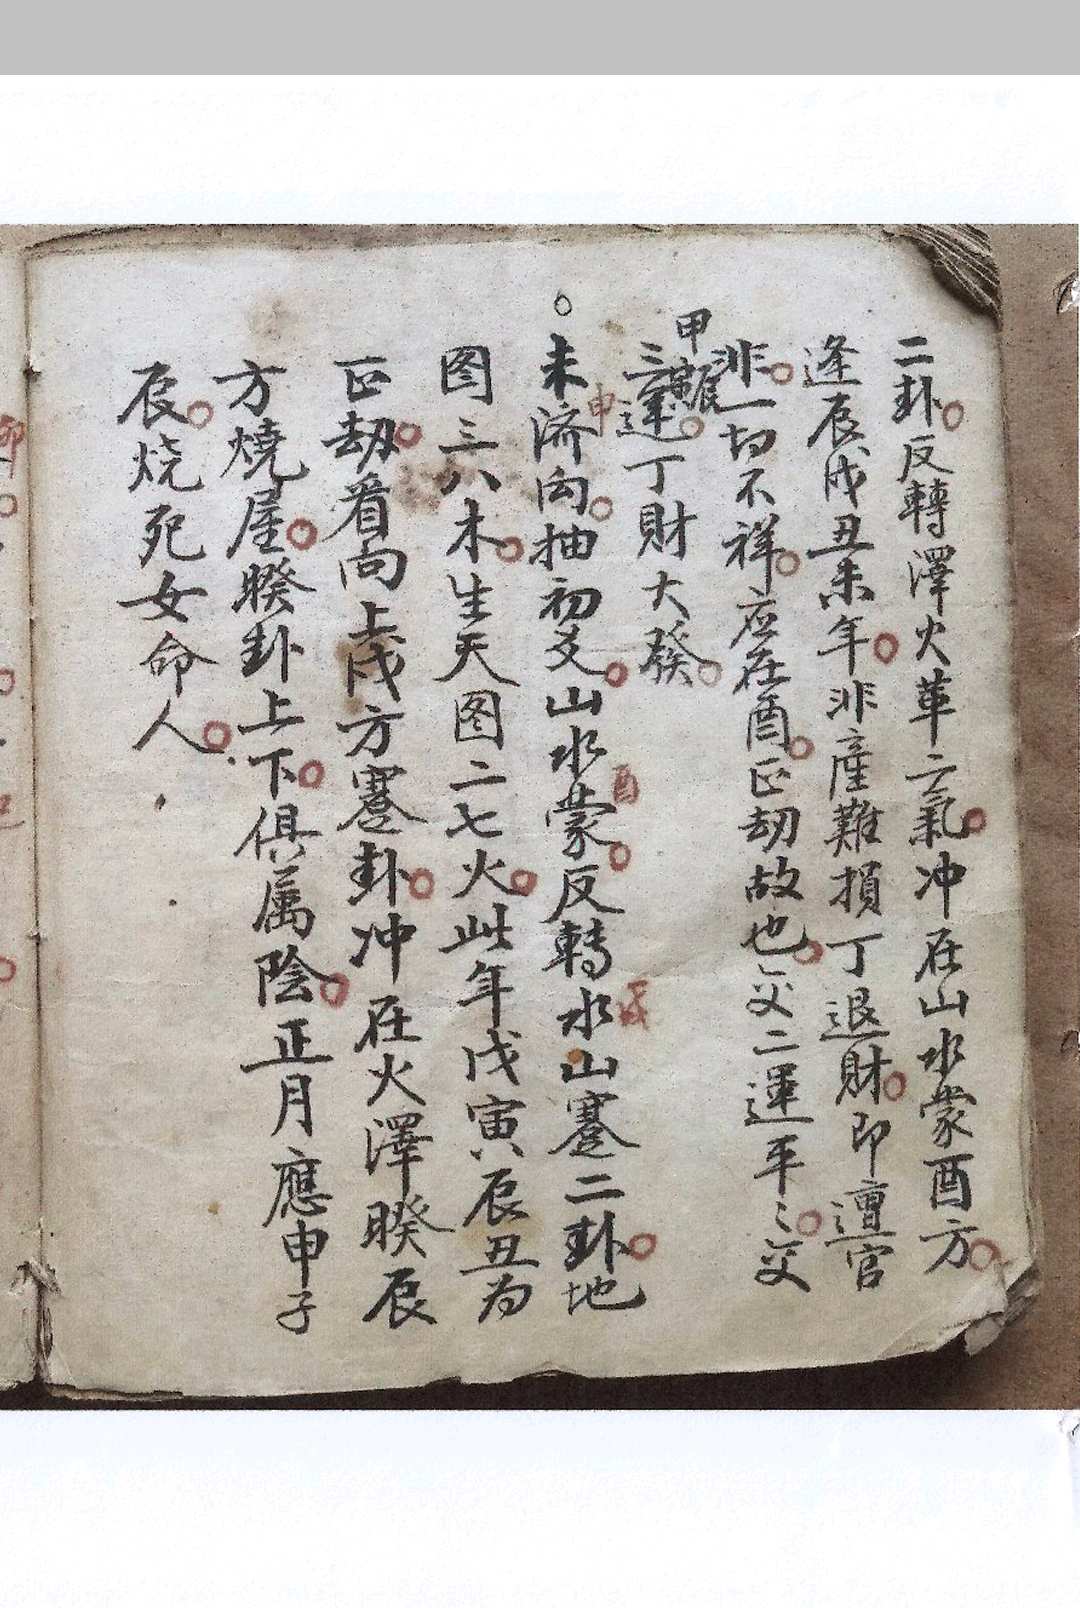 二卦反轉澤火革二氣冲在山水蒙酉方
逢辰戌丑未年非產難損丁退財即遭官
非一切不祥应在酉正劫故也交二運平〻交
三運丁財大發
甲辰
未济向抽初爻山水蒙反轉水山蹇二卦地
申
酉
图三八木生天图二七火此年戊寅辰丑为
正劫看向上戌方蹇卦冲在火澤睽辰
方燒屋睽卦上下俱属陰正月應申子
辰烧死女命人